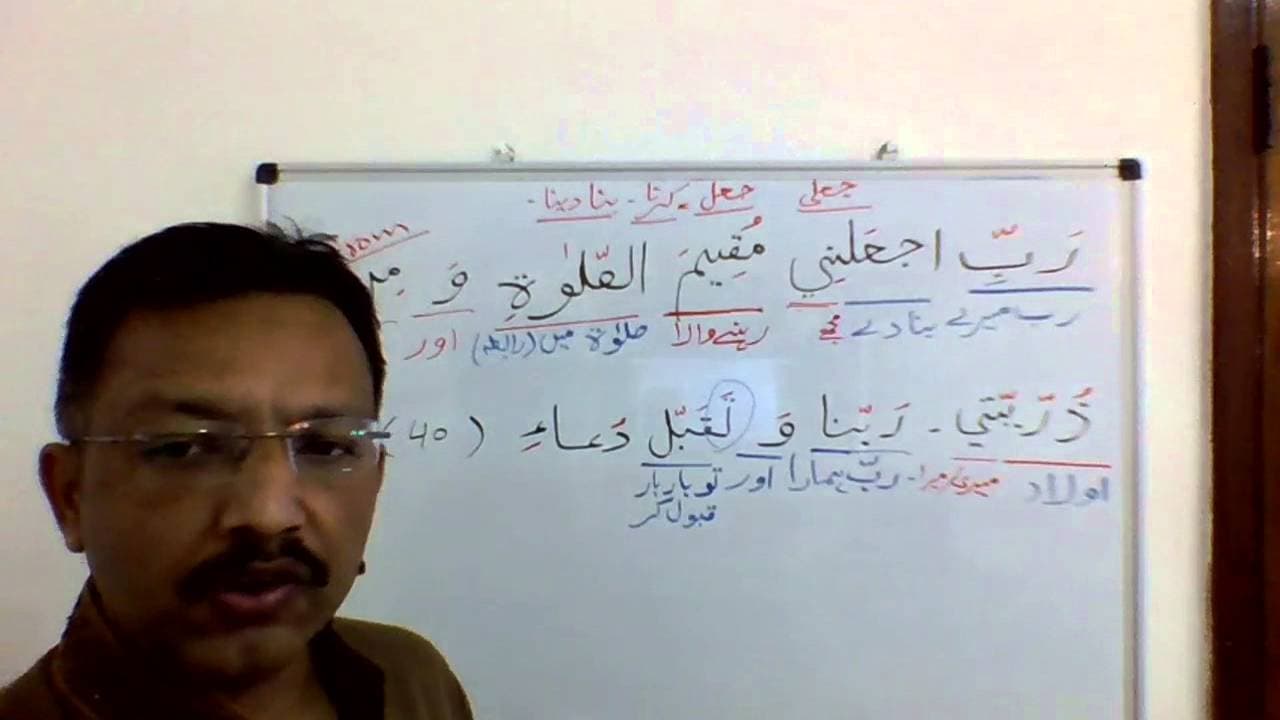 جعلی جعل۔ کرنا۔ بنا دینا۔
رَبِّ اجعَلنِي مُقِيمَ الصّلوٰةِ وَ مِن
رب میرے بنا دے مجھے رہنے والا صلوٰة میں (رابطہ) اور
ذُرّيّتي۔ رَبّنا وَ تَقَبّل دُعاءِ (40)
اولاد میری/میرا۔ ربّ ہمارا اور تو بار بار
قبول کر